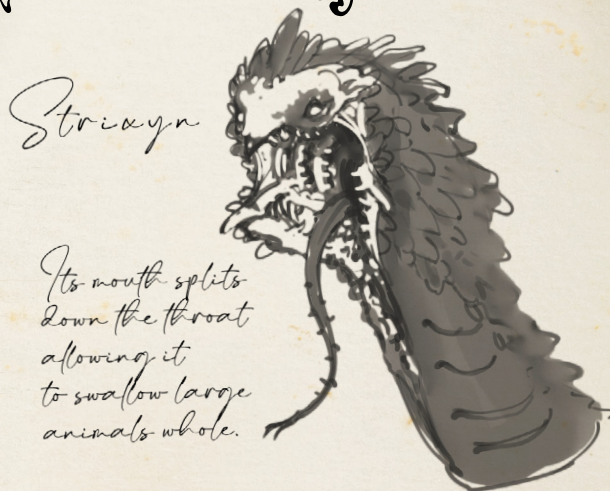 Strixyn
Its mouth splits
down the throat
allowing it
to swallow large
animals whole.